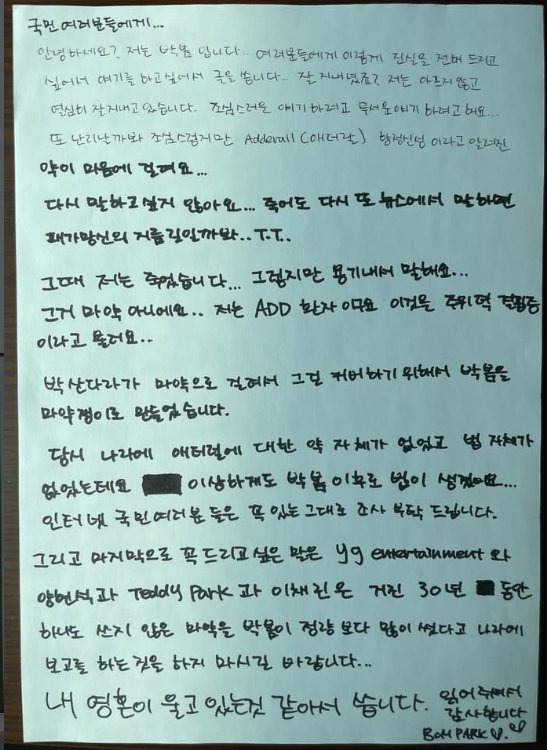 국민 여러분들에게...
안녕하세요? 저는 박봄 입니다.. 여러분들에게 이렇게 진실을 전버 드리고
싶어서 얘기를 하고싶어서 글을 씁니다.. 잘 지내셨죠? 저는 아프지않고
열심히 잘지내고 있습니다. 조심스러운 얘기하려고 무서운얘기 하려고 해요...
또 난리날까봐 조심스럽지만 Adderall (애더랄) 향정신성 이라고 알려진
약이 마음에 걸려요...
다시 말하고싶지 않아요... 죽어도 다시 또 뉴스에서 말하면
패가망신의 지름길일까봐.. T.T..
그때 저는 죽었습니다... 그렇지만 용기내서 말해요...
그거 마약 아니에요.. 저는 ADD 환자 이구요 이것은 주위력 결핍증
이라고 불러요..
박산다라가 마약으로 걸려서 그걸 커버하기 위해서 박봄을
마약쟁이로 만들었습니다.
당시 나라에 애터럴에 대한 약 자체가 없었고 법 자체가
없었는데요 이상하게도 박봄 이후로 법이 생겼어요...
인터넷 국민여러분 들은 꼭 있는그대로 조사 부탁 드립니다.
그리고 마지막으로 꼭드리고싶은 말은 yg entertainment 와
양현석과 Teddy Park 과 이채린은 거진 30년 동안
하나도 쓰지 않은 마약을 박봄이 정량 보다 많이 썼다고 나라에
보고를 하는것을 하지 마시길 바랍니다...
내 영혼이 울고 있는것 같아서 씁니다. 읽어주셔서
감사합니다
BOM PARK ♡.♡